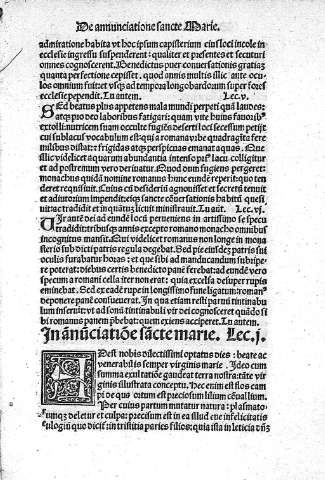 De annunciatione sancte Marie.
admiratione habita vt hoc ipsum capisterium eius loci incole in
ecclesie ingressu suspenderent: qualiter et presentes et secuturi
omnes cognoscerent. Benedictus puer conuersationis gratiaȝ
quanta perfectione cepisset. quod annis multis illic ante ocu-
los omnium fuit et vsqȝ ad tempora longobardorum super fores
ecclesie pependit. Tu autem. Lec. v.
SEd beatus plus appetens mala mundi perpeti quã laudes:
atqȝ pro deo laboribus fatigari: quam vite huius fauoribꝰ
extolli: nutricem suam occulte fugiẽs deserti loci secessum petijt
cui sublacus vocabulum est: qui a romana vrbe quadragĩta fere
milibus distat: frigidas atqȝ perspicuas emanat aquas. Que
illic videlicet aquarum abundantia in lacu colligitur
et ad postremum vero deriuatur. Quo dum fugiens pergeret:
monachus quidã nomine romanus hunc eundẽ reperit: quo ten
deret requisiuit. Cuius cũ desideriũ agnouisset et secretũ tenuit
et adiutorium impendit: eiqȝ sancte cõuersationis habitũ
tradidit et inquãtuȝ licuit ministrauit. Tu aũt. Lec. vj.
Uir autẽ dei ad eundẽ locũ perueniens in artissimo se specu
tradidit: tribusqȝ annis excepto romano monacho omnibus
incognitus mansit. Qui videlicet romanus non longe in mona
sterio sub dicti patris regula degebat. Sed pie eiusdeȝ patris sui
oculis furabatur horas: et que sibi ad manducandum subripe-
re poterat: diebus certis benedicto panẽ ferebat: ad eundẽ vero
specum a romani cella iter non erat: quia excelsa desuper rupis
eminebat. Sed ex eadẽ rupe in longissimo fune ligatum: romanꝰ
deponere panẽ consueuerat. In qua etiam resti paruũ tintinabu
lum inseruit: vt ad sonũ tintinabuli vir dei cognosceret quãdo si
bi romanus panem p̃bebat: quem exiens acciperet. Tu autem.
In ãnũciatiõe sãcte marie. Lec. j.
ADest nobis dilectissimi optatus dies: beate ac
venerabilis semper virginis marie. Ideo cum
summa exultatiõe gaudeat terra nostra: tãte vir
ginis illustrata conceptu. Hec enim est flos cam
pi de quo ortum est preciosum lilium cõuallium.
Per cuius partum mutatur natura: plasmato-
rumqȝ deletur et culpa: precisum est in ea illud eue infelicitatis
eulogiũ quo dicit: in tristitia paries filios: quia ista in leticia dñȝ